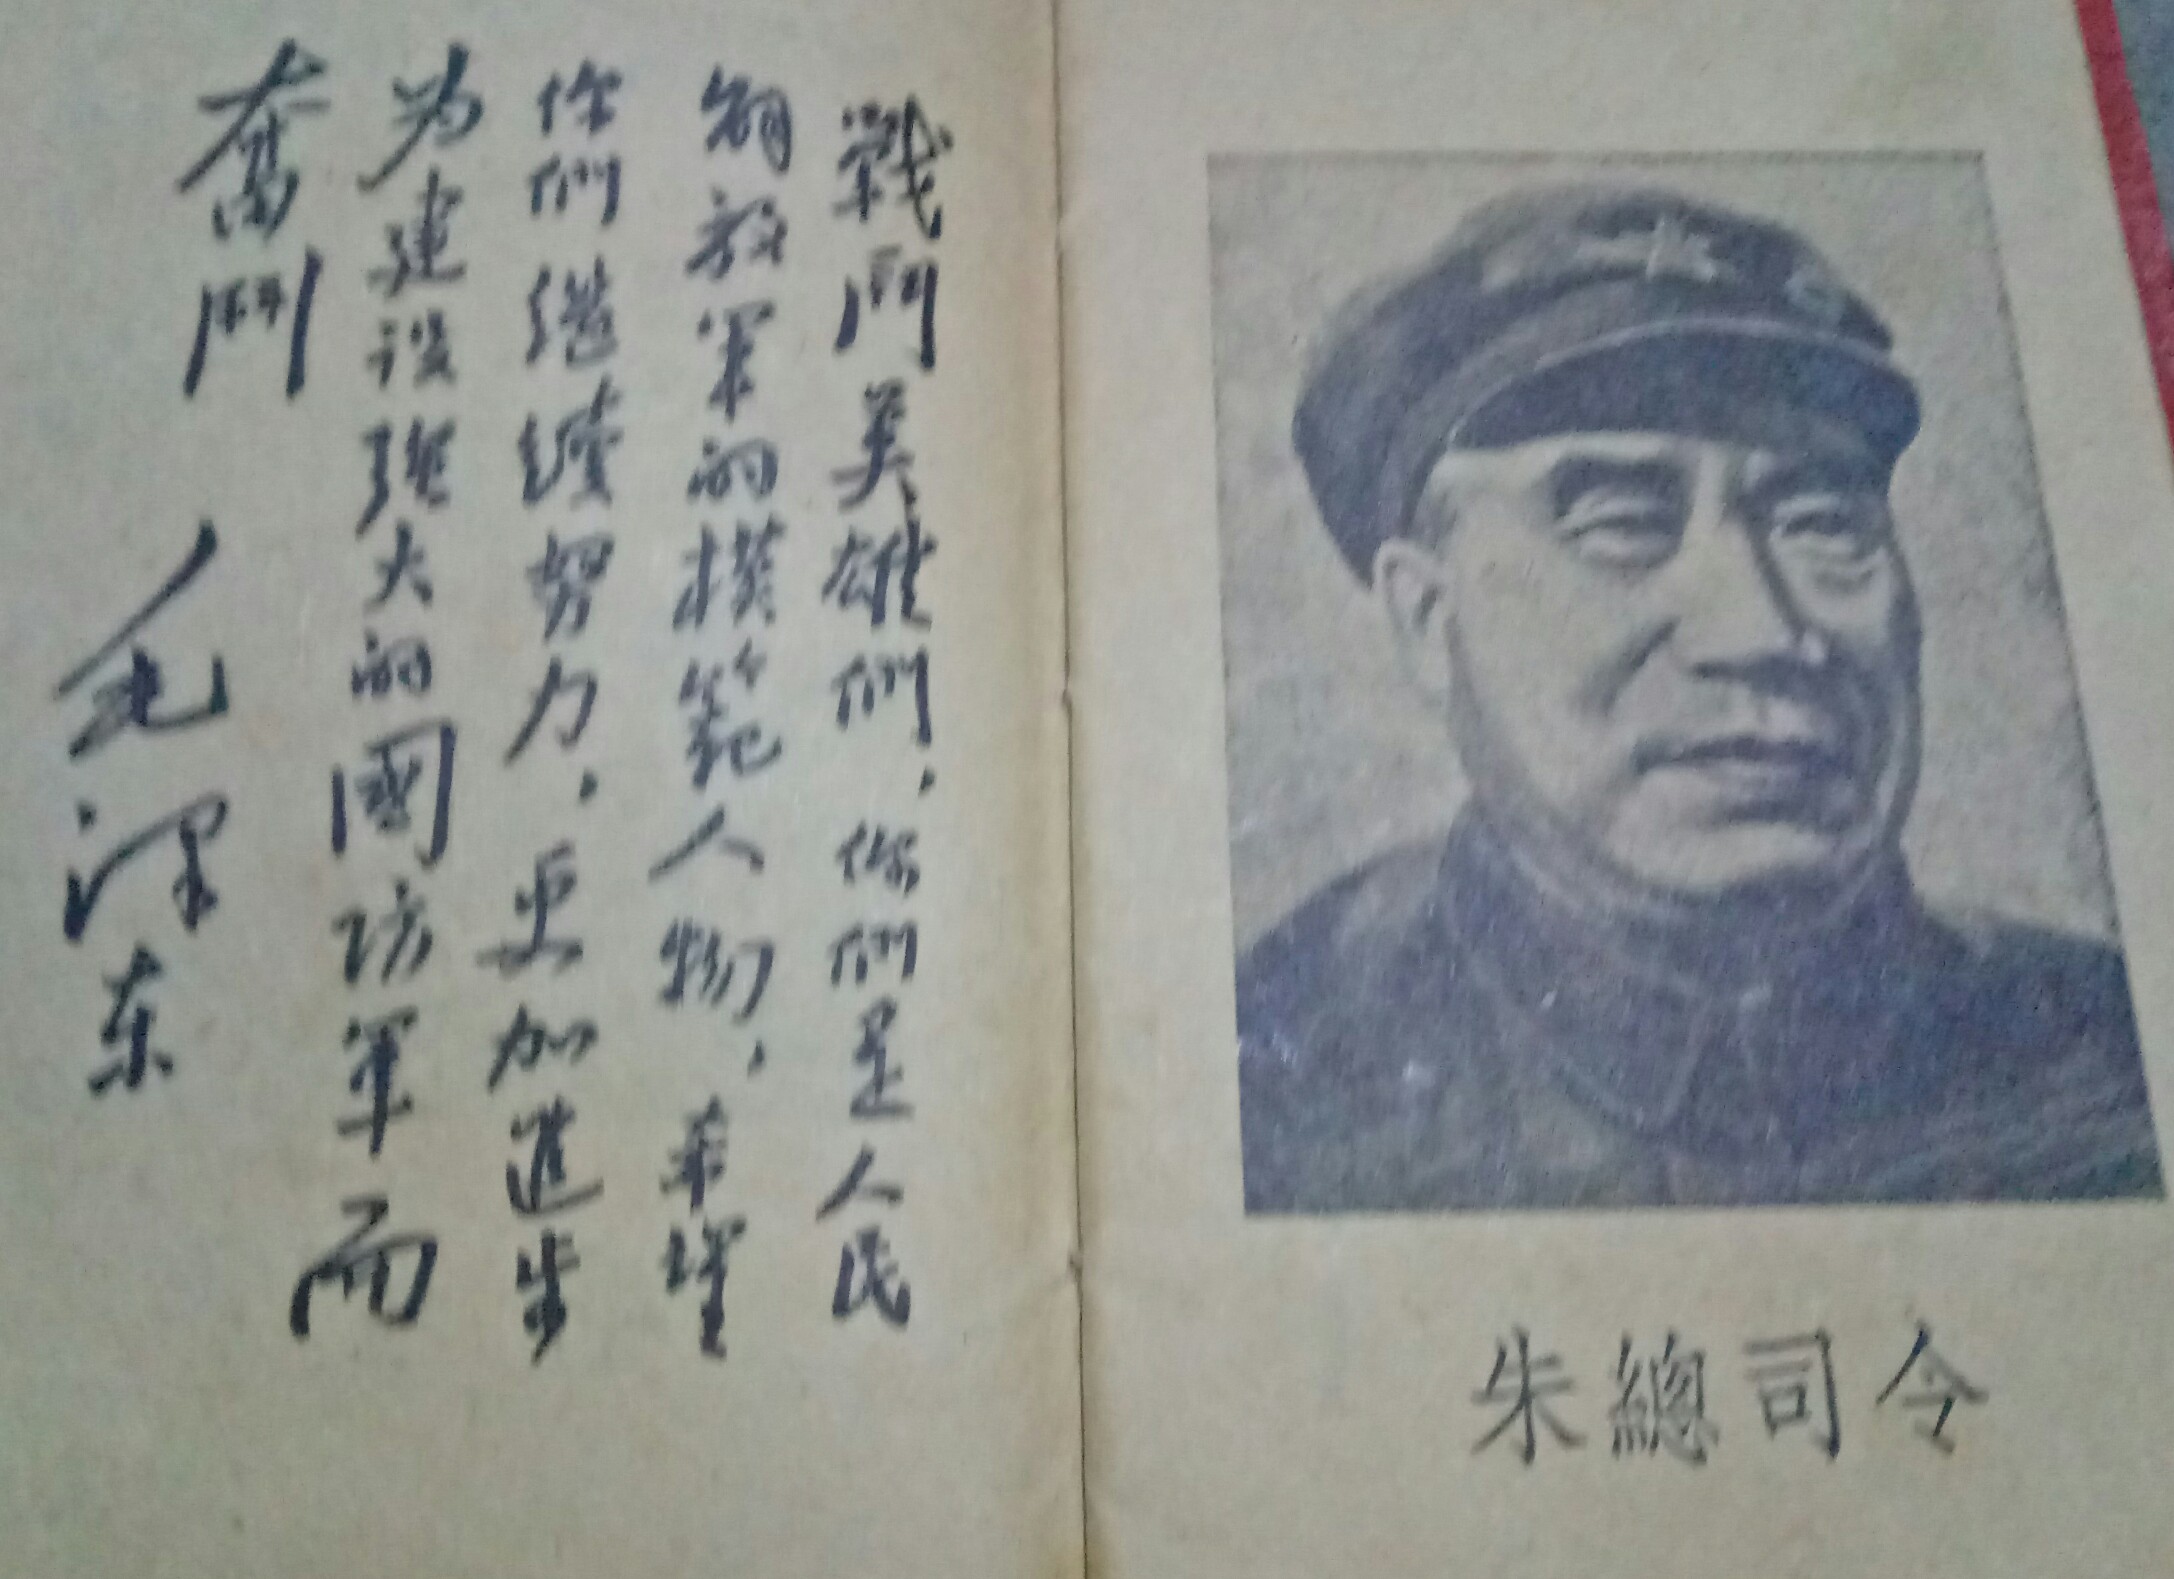 戰鬥英雄們，你們是人民
解放軍的模範人物，希望
你們继續努力，更加進步
为建設强大的國防军而
奮鬥
毛澤东
朱總司令